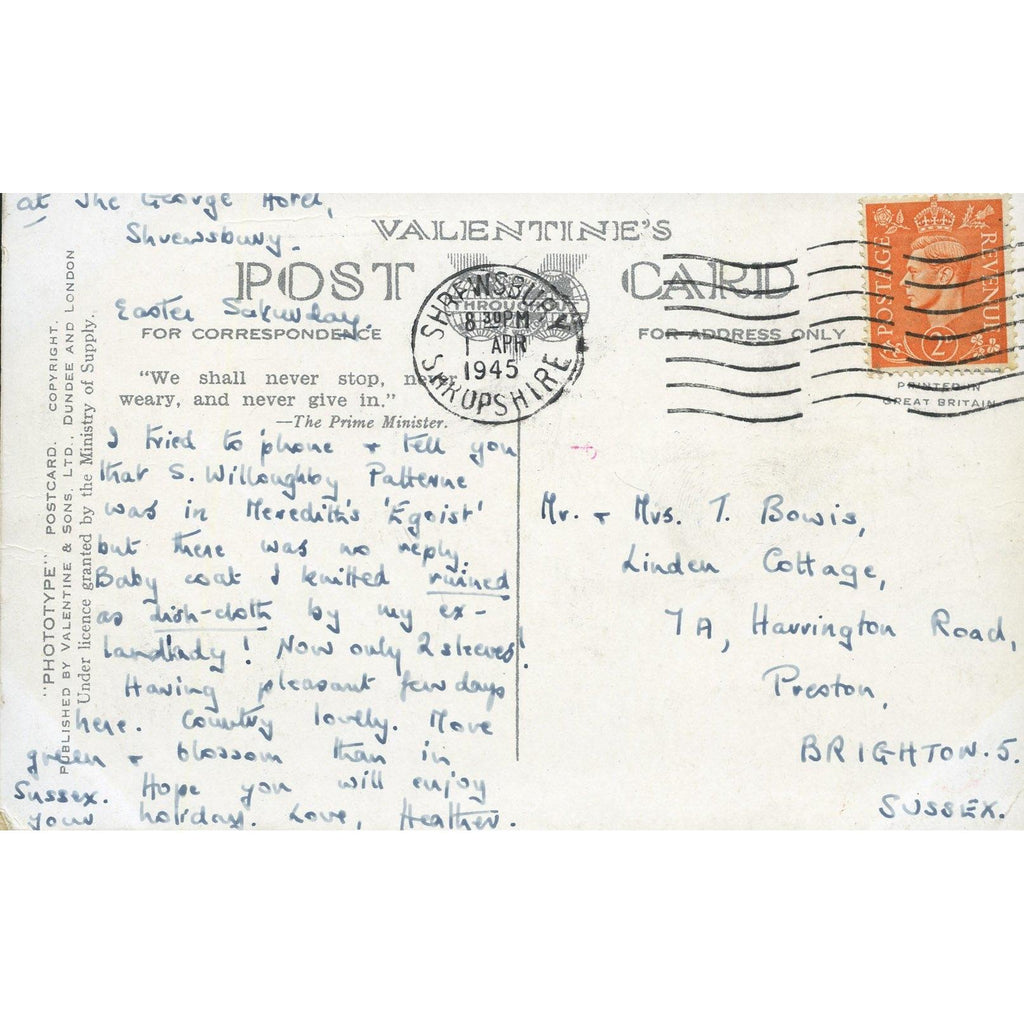 at The George Hotel,
Shrewsbury.
Easter Saturday.
VALENTINE'S
POST CARD
FOR CORRESPONDENCE
FOR ADDRESS ONLY
"We shall never stop, never
weary, and never give in."
—The Prime Minister.
I tried to 'phone + tell you
that S. Willoughby Patterne
was in Meredith's 'Egoist'
but there was no reply.
Baby coat I knitted ruined
as dish-cloth by my ex-
landlady! Now only 2 sleeves!
Having pleasant few days
here. Country lovely. More
green + blossom than in
Sussex. Hope you will enjoy
your holiday. Love, Heather.
"PHOTOTYPE" POSTCARD. COPYRIGHT.
PUBLISHED BY VALENTINE & SONS, LTD., DUNDEE AND LONDON
Under licence granted by the Ministry of Supply.
THROUGH
SHREWSBURY
8 30PM
1 APR
1945
SHROPSHIRE
POSTAGE
REVENUE
2D
PRINTED IN
GREAT BRITAIN
Mr. + Mrs. T. Bowis,
Linden Cottage,
7A, Harrington Road,
Preston,
BRIGHTON. 5.
SUSSEX.